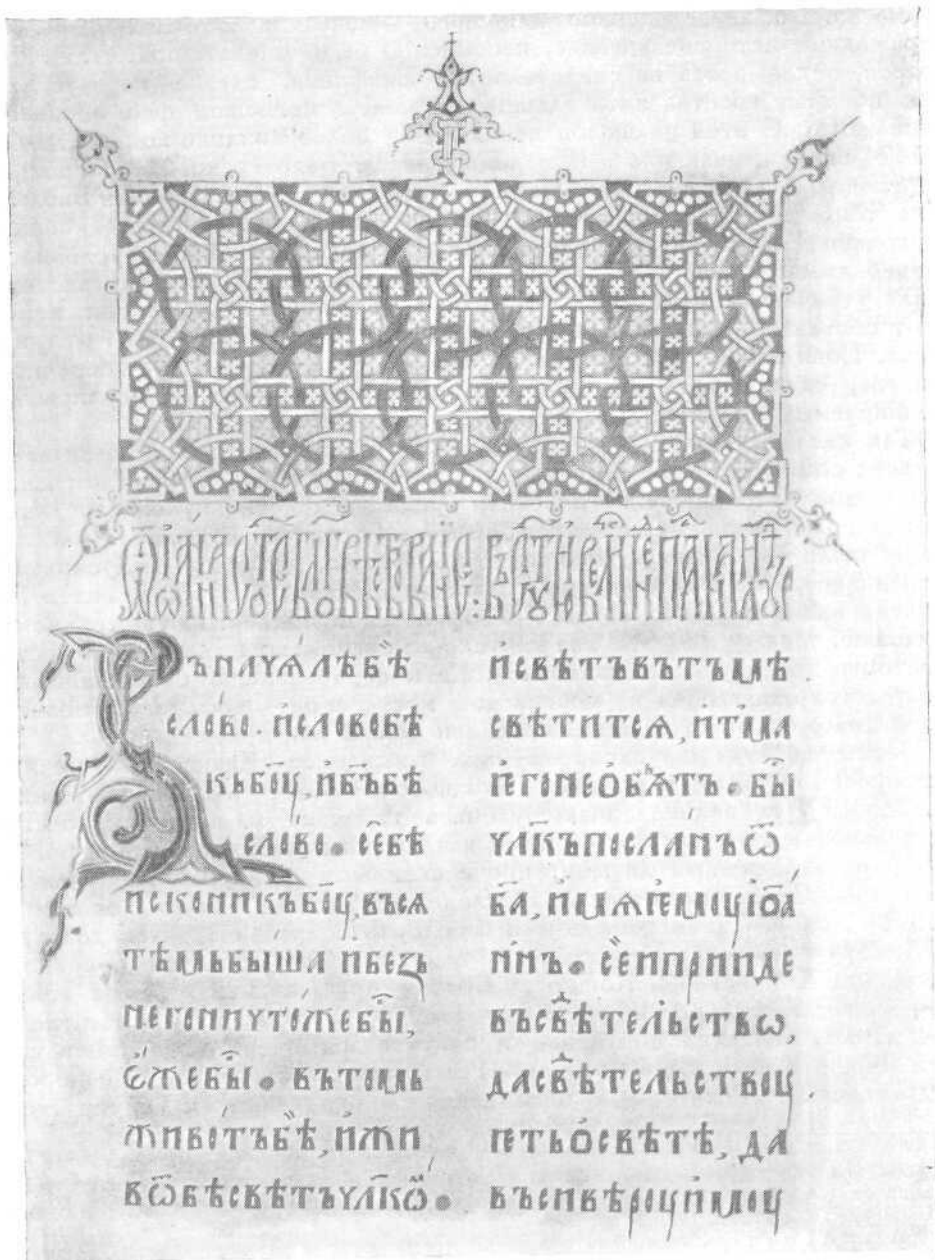 Въначѧлѣбѣ
слово. исловобѣ
къбоу, ибъбѣ
слово • себѣ
исконикъбоу, въсѧ
тѣмьбышѧ ибезь
негоничтожебы,
ѡжебы • вътомь
животъбѣ, ижи
вѡбѣсвѣтъчлкѡ •
исвѣтъвътъмѣ
свѣтитсѧ, итма
ꙗгонеобѧтъ • бы
члкъпосланъѿ
ба, имѧꙗмоуіоа
ннъ • сеиприиде
въсвѣтельствѡ,
дасвѣтельствоу
ꙗтьосвѣтѣ, да
въсивѣроуимоу